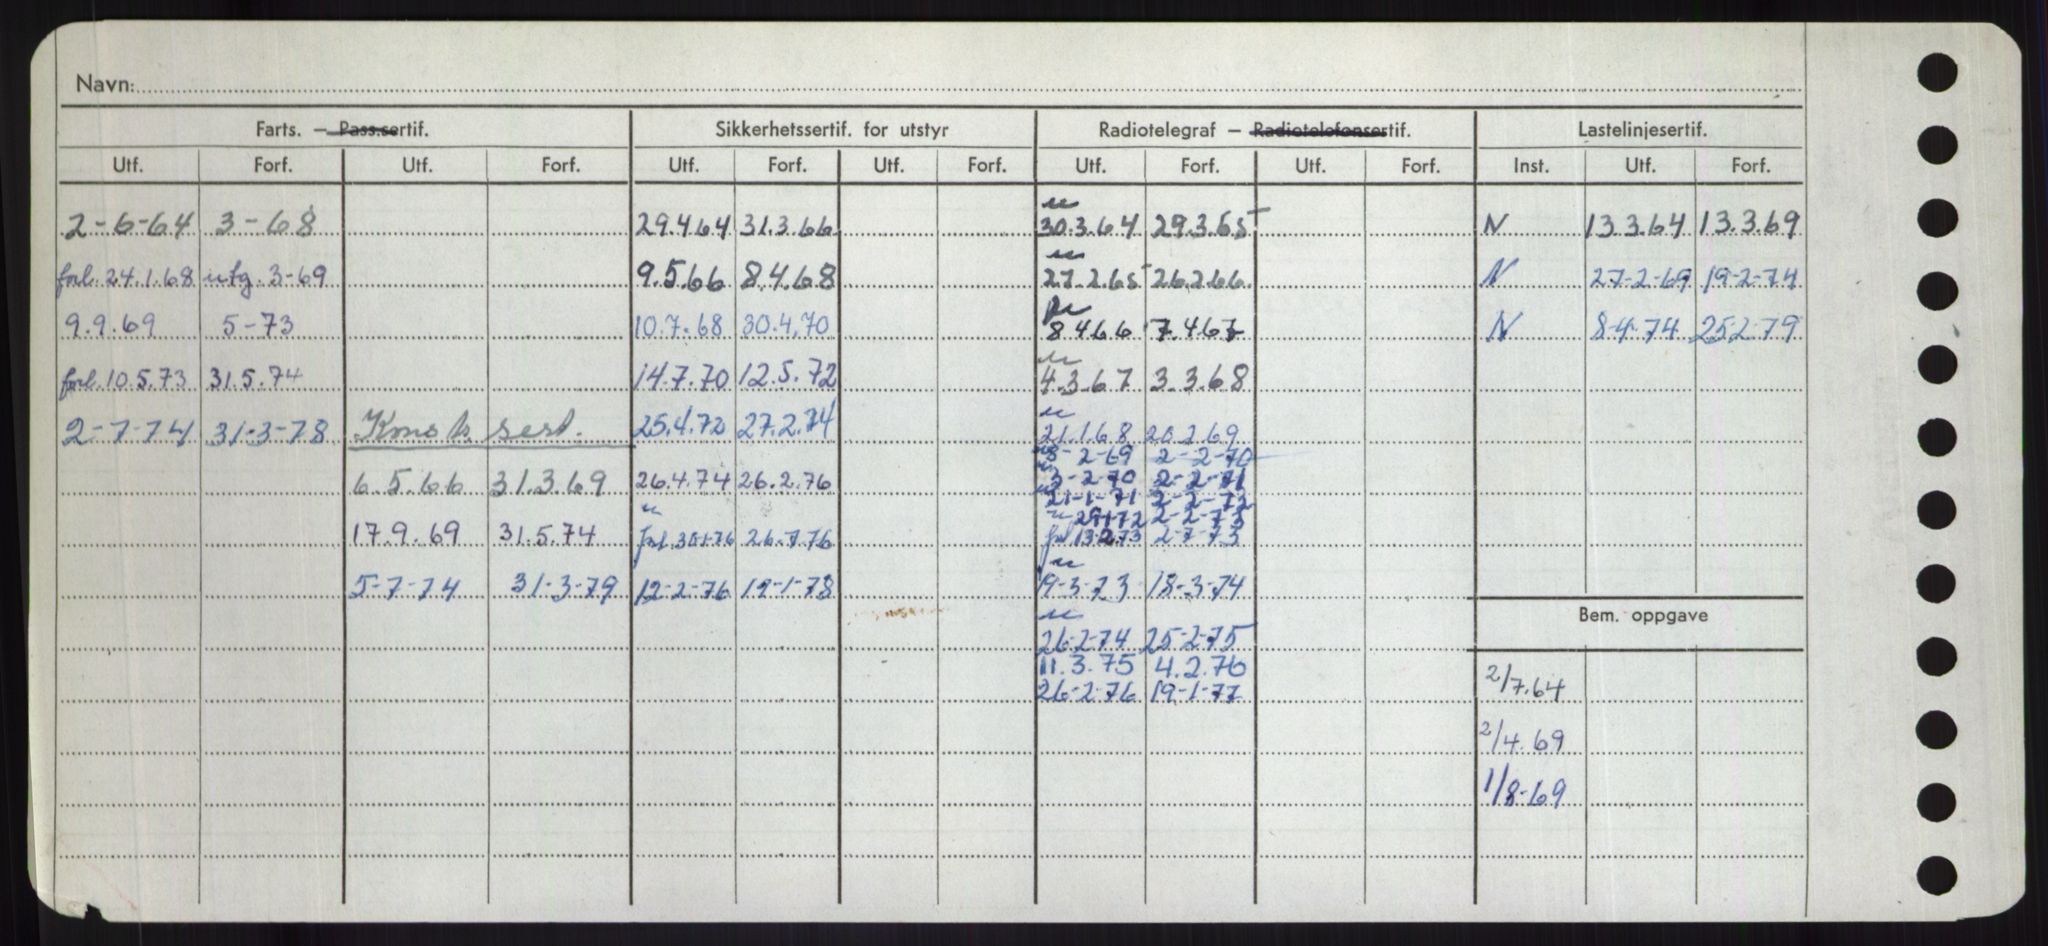 Navn:
Farts. — Pass.sertif. Sikkerhetssertif. for utstyr Radiotelegraf — Radiotelefonsertif. Lastelinjesertif.
Utf. Forf. Utf. Forf. Utf. Forf. Utf. Forf. Utf. Forf. Utf. Forf. Inst. Utf. Forf.
2-6-64 3-68 29.4.64 31.3.66 30.3.64 29.3.65 N 13.3.64 13.3.69
forl. 24.1.68 utg. 3-69 9.5.66 8.4.68 27.2.65 26.2.66 N 27-2-69 19-2-74
9.9.69 5-73 10.7.68 30.4.70 8.4.66 7.4.67 N 8-4.74 25-2-79
forl. 10.5.73 31.5.74 14.7.70 12.5.72 4.3.67 3.3.68
2-7-74 31-3-78 sert. 25.4.72 27.2.74 21.1.68 20.1.69
3-2-69 2-2-70
6.5.66 31.3.69 26.4.74 26.2.76 3-2-70 2-2-71
21-1-71 2-2-72
29-1-72 2-2-73
17.9.69 31.5.74 forl. 30-1-76 26-7-76 forl 13-2-73 2-7-73
5-7-74 31-3-79 12-2-76 19-1-78 19-3-73 18-3-74
Bem. oppgave
26-2-74 25-2-75
11.3.75 4.2.76
26-2-76 19-1-77
2/7.64
2/4.69
1/8-69